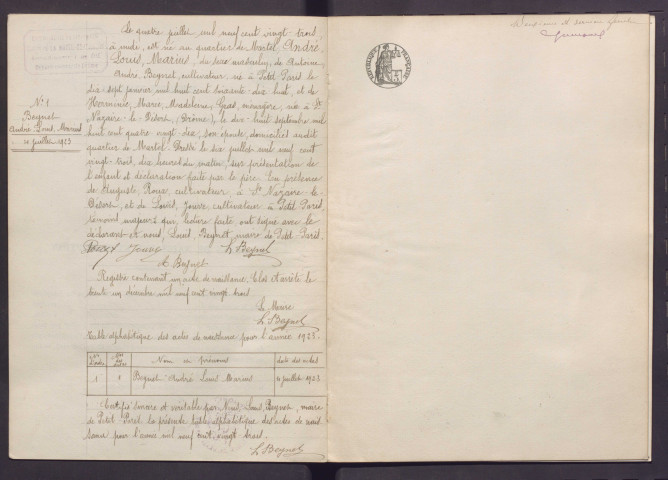 Le quatre juillet mil neuf cent vingt-trois,
à midi, est né au quartier de Martel, André,
Louis, Marius, du sexe masculin, de Antoine,
André, Beynet, cultivateur né à Petit Paris le
dix sept janvier mil huit cent soixante-dix huit, et de
Herminie, Marie, Magdeleine, Gras, ménagère, née à St
Nazaire-le-Désert (Drôme), le dix-huit septembre mil
huit cent quatre vingt-dix, son épouse, domiciliés audit
quartier de Martel. Dressé le six juillet mil neuf cent
vingt-trois, dix heures du matin, sur présentation de
l'enfant et déclaration faite par le père. En présence
de Auguste, Roux, cultivateur à St Nazaire-le-
Désert, et de Louis, Jouve, cultivateur à Petit Paris,
témoins majeurs qui, lecture faite, ont signé avec le
déclarant et nous, Louis, Beynet, maire de Petit-Paris.
Jouve L Beynet
A Beynet
Registre contenant un acte de naissance. Clos et arrêté le
trente un décembre mil neuf cent vingt trois.
Le Maire
L Beynet
Table alphabétique des actes de naissances pour l'année 1923.
Nom et prénoms date des actes
1 1 Beynet André Louis Marius 4 juillet 1923
Certifié sincère et véritable par Nous, Louis, Beynet, maire
de Petit-Paris, la présente table alphabétique des actes de nais
sance pour l'année mil neuf cent vingt trois.
L Beynet
N° 1
Beynet
André Louis Marius
4 juillet 1923
RÉPUBLIQUE FRANÇAISE